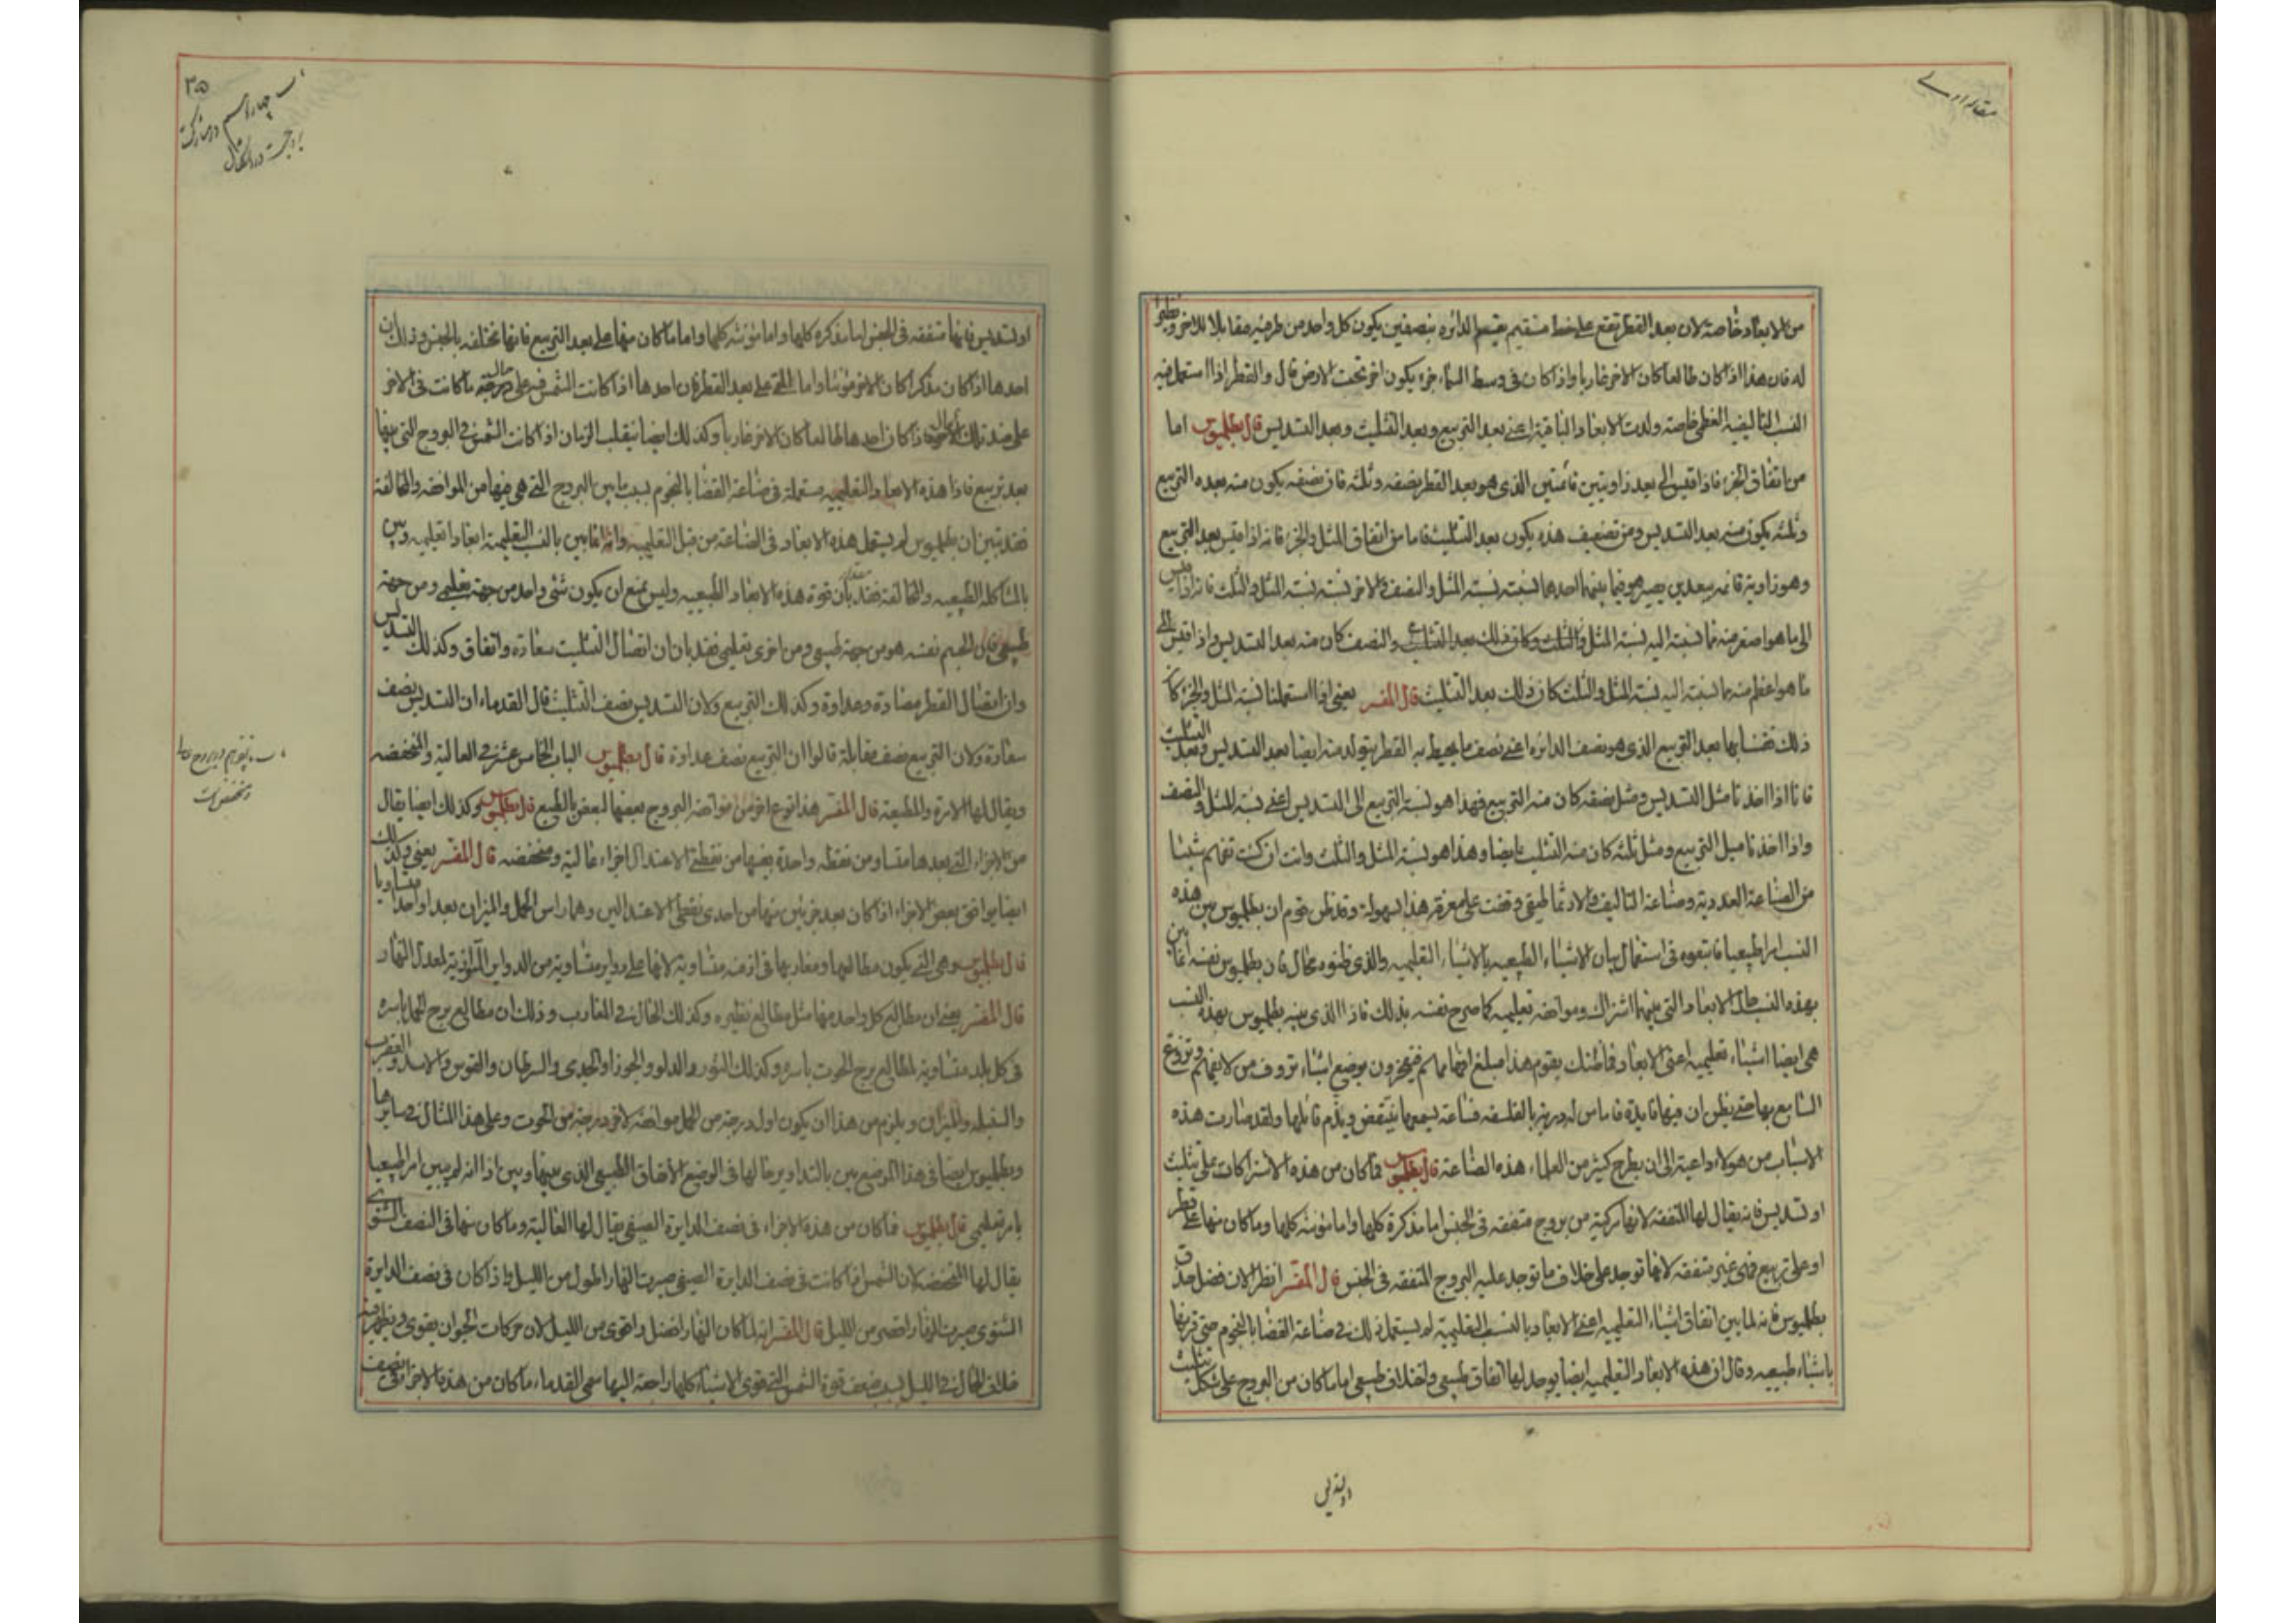 مقاله اولى
من الابعاد خاصة لان بعد القطر يقع على خط مستقيم يقسم الدائره بنصفين يكون كل واحد من طرفيه مقابلا للاخر ونظيرا
له فان هذا اذا كان طالعا كان الاخر غاربا واذا كان فى وسط السماء جزء يكون اخر تحت الارض قال والقطر اذا استعمل فيه
النسب التاليفيه العظمى خاصة ولدت الابعاد الباقية اعنى بعد التربيع وبعد التثليث وبعد التسديس قال بطلميوس اما
من اتفاق الجزء فاذا قيس الى بعد زاويتين قائمتين الذى هو بعد القطر نصفه وثلثه فان نصفه يكون منه بعده التربيع
وثلثه يكون منه بعد التسديس ومن تضعيف هذه يكون بعد التثليث فاما من اتفاق المثل والجزء فانه اذا قيس بعد التربيع
وهو زاوية قائمه ببعدين يصير هو فيما بينهما احدهما نسبته نسبة المثل والنصف والاخر نسبته نسبة المثل والثلث فانه اذا قيس
الى ما هو اصغر منه مما نسبته اليه نسبة المثل والنصف كان منه بعد التسديس واذا قيس الى
ما هو اعظم منه مما نسبته اليه نسبة المثل والثلث كان ذلك بعد التثليث قال المفسر يعنى اذا استعملنا نسبة المثل والجزء كان
ذلك بعد التربيع الذى هو نصف الدائره اعنى نصف ما يحيط به القطر يتولد منه ايضا بعد التسديس وبعد التثليث
فانا اذا اخذنا مثل التسديس ومثل نصفه كان منه التربيع فهذا هو نسبة التربيع الى التسديس اعنى نسبة المثل والنصف
واذا اخذنا مثل التربيع ومثل ثلثه كان منه التثليث ايضا وهذا هو نسبة المثل والثلث وانت ان كنت تفهم شيئا
من الصناعة العددية وصناعة التاليف والارثماطيقى وقفت على معرفة هذا بسهولة وقد ظن قوم ان بطلميوس بين هذه
النسب امرا طبيعيا فاتبعوه فى استعمال بيان الاشياء الطبيعيه بالاشياء التعليميه والذى ظنوه محال فان بطلميوس نفسه انما بين
بهذه النسب الابعاد التى بينهما اشتراك ومواضع تعليميه كما صرح نفسه بذلك فاذا الذى بينه بطلميوس بهذه النسب
هى ايضا اشياء تعليميه اعنى الابعاد فما ظنك بقوم هذا مبلغ افهامهم فيفخرون بوضع اشياء تروف من لا يفهم وتروع
السامع بها حتى يظن ان فيها فايدة فاما من له دربة بالفلسفه فساعة يسمعها ينتقض ويذم قائلها ولقد صارت هذه
الاسباب من هولاء داعية الى ان يطرح كثير من العلماء هذه الصناعة قال بطلميوس فما كان من هذه الاشتراكات على تثليث
او تسديس فانه يقال لها المتفقه لانها مركبة من بروج متفقه فى الجنس اما مذكرة كلها واما مونثه كلها وما كان منها على قطر
او على تربيع فهى غير متفقه لانها توجد على خلاف ما توجد عليه البروج المتفقه فى الجنس قال المفسر انظر الان فضل حذق
بطلميوس فانه لما بين اتفاق اشياء التعليميه اعنى الابعاد بالنسب التعليميه لم يستعمل ذلك فى صناعة القضا بالنجوم حتى قرنها
باشياء طبيعيه وقال ان هذه الابعاد التعليميه ايضا يوجد لها اتفاق طبيعى واختلاف طبيعى اما ما كان من البروج على شكل تثليث
او تسديس
٣٥
او تسديس فانها متفقه فى الجنس اما مذكره كلها واما مونثه كلها واما ما كان منها على بعد التربيع فانها تختلف بالجنس وذلك ان
احدها اذا كان مذكرا كان الاخر مونثا واما التى على بعد القطر فان احدها اذا كانت الشمس فيه على حال ما كانت فى الاخر
على ضد تلك الحال واذا كان احدها طالعا كان الاخر غاربا وكذلك ايضا ينقلب الزمان اذا كانت الشمس فى البروج التى بينها
بعد تربيع فاذا هذه الابعاد التعليميه يستعمله فى صناعة القضا بالنجوم بسبب ما بين البروج التى هى فيها من الموافقه والمخالفة
فقد تبين ان بطلميوس لم يستعمل هذه الابعاد فى الصناعة من قبل التعليميه وانه انما بين بالنسب التعليمية ابعادا تعليميه وبين
بالمشاكله الطبيعيه والمخالفة فقد بان قوة هذه الابعاد الطبيعيه وليس يمنع ان يكون شئ واحد من جهة تعليمى ومن جهة
طبيعى فان الجسم نفسه هو من جهة طبيعى ومن اخرى تعليمى فقد بان ان اتصال التثليث سعادة واتفاق وكذلك التسديس
وان اتصال القطر مضادة وعداوة وكذلك التربيع ولان التسديس نصف التثليث قال القدماء ان التسديس نصف
سعادة ولان التربيع نصف مقابلة قالوا ان التربيع نصف عداوة قال بطلميوس الباب الخامس عشر فى العالية والمنخفضه
ويقال لها الامرة والمطيعة قال المفسر هذا نوع اخر من موافقه البروج بعضها لبعض بالطبع قال بطلميوس وكذلك ايضا يقال
من الاجزاء التى بعدها متساو من نقطه واحدة بعينها من نقطتى الاعتدال اجزاء عالية ومنخفضه قال المفسر يعنى وكذلك
ايضا يوافق بعض الاجزاء اذا كان بعد جزئين منها من احدى نقطتى الاعتدالين وهما راس الحمل والميزان بعدا واحدا متساويا
قال بطلميوس وهى التى يكون مطالعها ومغاربها فى ازمنه متساوية لانها على دواير متساوية من الدواير الموازية لمعدل النهار
قال المفسر يعنى ان مطالع كل واحد منها مثل مطالع نظيره وكذلك الحال فى المغارب وذلك ان مطالع برج الحمل باسره
فى كل بلد متساوية لمطالع برج الحوت باسره وكذلك الثور والدلو والجوزا والجدى والسرطان والقوس والاسد والعقرب
والسنبله والميزان ويلزم من هذا ان يكون اول درجة من الحمل موافقه لاخر درجة من الحوت وعلى هذا المثال فى سايرها
وبطلميوس ايضا فى هذا الموضع بين بالتداوير حالها فى الوضع الاتفاق الطبيعى الذى بينهما وبين اذا انه لم يبين امرا طبيعيا
بامر تعليمى قال بطلميوس فما كان من هذه الاجزاء فى نصف الدايرة الصيفى يقال لها العالية وما كان منها فى النصف الشتوى
يقال لها المنخفضه لان الشمس اذا كانت فى نصف الدايرة الصيفى صيرت النهار اطول من الليل واذا كان فى نصف الدايرة
الشتوى صيرت النهار اقصر من الليل قال المفسر انه لما كان النهار افضل واقوى من الليل لان حركات الحيوان يقوى ويظهر فيه
خلاف الحال فى الليل بسبب ضعف قوة الشمس التى قوى الاشياء كلها راجعة اليها سمى القدماء ما كان من هذه الاجزاء فى نصف